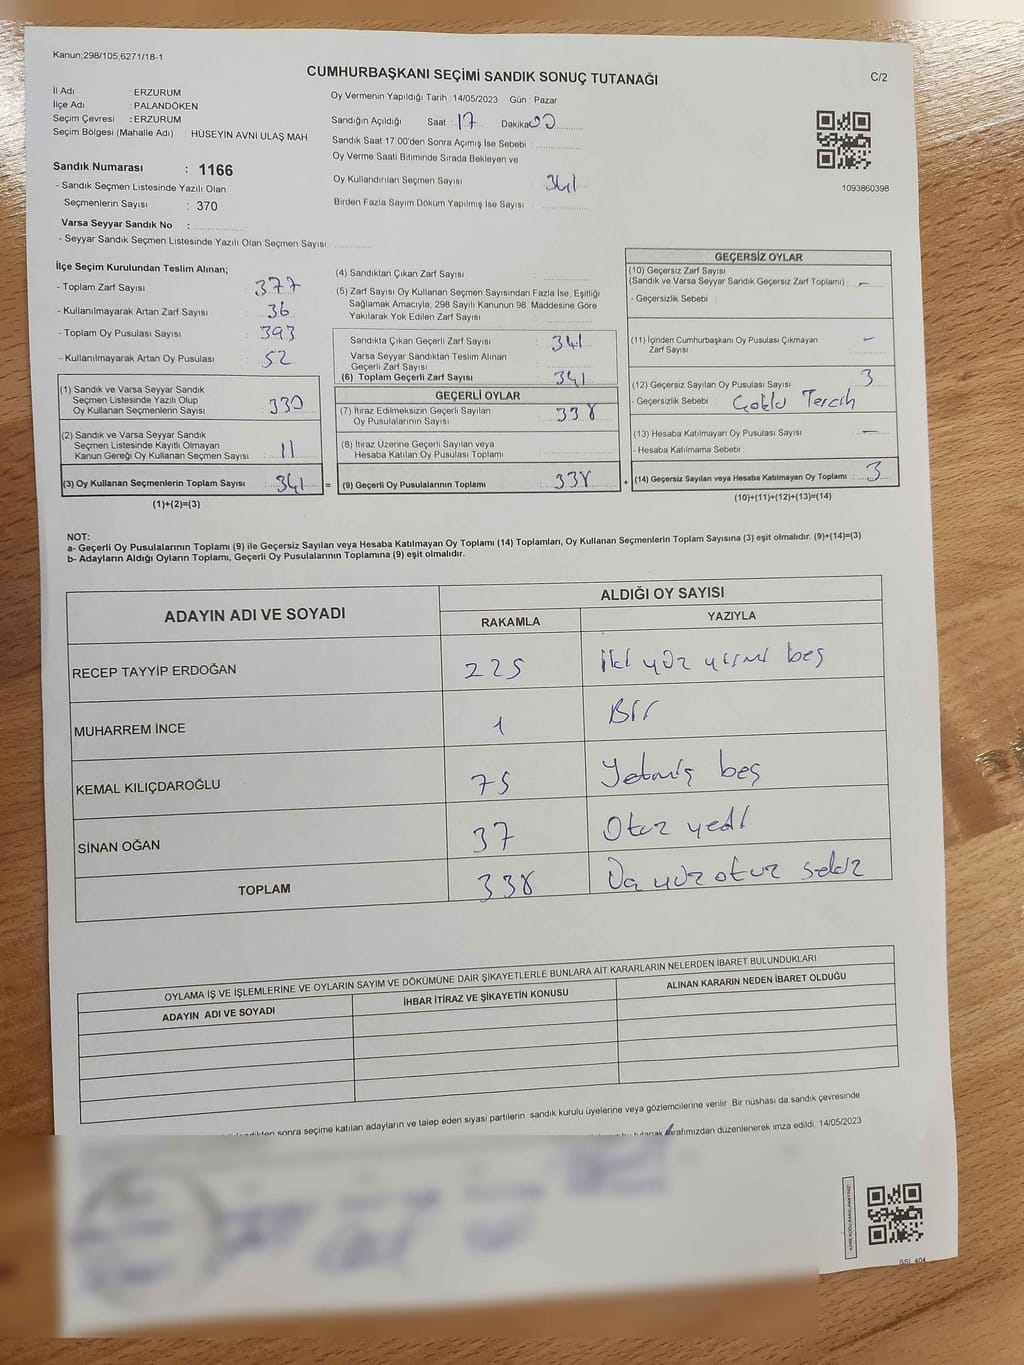 Kanun;298/105;6271/18-1
CUMHURBAŞKANI SEÇİMİ SANDIK SONUÇ TUTANAĞI
C/2
İl Adı : ERZURUM
İlçe Adı : PALANDÖKEN
Seçim Çevresi : ERZURUM
Seçim Bölgesi (Mahalle Adı) : HÜSEYİN AVNİ ULAŞ MAH.
Oy Vermenin Yapıldığı Tarih : 14/05/2023 Gün : Pazar
Sandığın Açıldığı Saat : 17 Dakika 00
Sandık Saat 17:00'den Sonra Açımış İse Sebebi :
Oy Verme Saati Bitiminde Sırada Bekleyen ve
Oy Kullandırılan Seçmen Sayısı : 341
Birden Fazla Sayım Döküm Yapılmış İse Sayısı :
1093860398
Sandık Numarası : 1166
- Sandık Seçmen Listesinde Yazılı Olan
Seçmenlerin Sayısı : 370
Varsa Seyyar Sandık No :
- Seyyar Sandık Seçmen Listesinde Yazılı Olan Seçmen Sayısı:
İlçe Seçim Kurulundan Teslim Alınan;
- Toplam Zarf Sayısı : 377
- Kullanılmayarak Artan Zarf Sayısı : 36
- Toplam Oy Pusulası Sayısı : 393
- Kullanılmayarak Artan Oy Pusulası : 52
(1) Sandık ve Varsa Seyyar Sandık
Seçmen Listesinde Yazılı Olup
Oy Kullanan Seçmenlerin Sayısı : 330
(2) Sandık ve Varsa Seyyar Sandık
Seçmen Listesinde Kayıtlı Olmayan
Kanun Gereği Oy Kullanan Seçmen Sayısı : 11
(3) Oy Kullanan Seçmenlerin Toplam Sayısı : 341 =
(1)+(2)=(3)
(4) Sandıktan Çıkan Zarf Sayısı :
(5) Zarf Sayısı Oy Kullanan Seçmen Sayısından Fazla İse, Eşitliği
Sağlamak Amacıyla; 298 Sayılı Kanunun 98. Maddesine Göre
Yakılarak Yok Edilen Zarf Sayısı :
Sandıkta Çıkan Geçerli Zarf Sayısı : 341
Varsa Seyyar Sandıktan Teslim Alınan
Geçerli Zarf Sayısı :
(6) Toplam Geçerli Zarf Sayısı : 341
GEÇERLİ OYLAR
(7) İtiraz Edilmeksizin Geçerli Sayılan
Oy Pusulalarının Sayısı : 338
(8) İtiraz Üzerine Geçerli Sayılan veya
Hesaba Katılan Oy Pusulası Toplamı :
(9) Geçerli Oy Pusulalarının Toplamı : 338 +
GEÇERSİZ OYLAR
(10) Geçersiz Zarf Sayısı
(Sandık ve Varsa Seyyar Sandık Geçersiz Zarf Toplamı) : -
- Geçersizlik Sebebi :
(11) İçinden Cumhurbaşkanı Oy Pusulası Çıkmayan
Zarf Sayısı : -
(12) Geçersiz Sayılan Oy Pusulası Sayısı : 3
- Geçersizlik Sebebi : Çoklu Tercih
(13) Hesaba Katılmayan Oy Pusulası Sayısı : -
- Hesaba Katılmama Sebebi :
(14) Geçersiz Sayılan veya Hesaba Katılmayan Oy Toplamı : 3
(10)+(11)+(12)+(13)=(14)
NOT:
a- Geçerli Oy Pusulalarının Toplamı (9) ile Geçersiz Sayılan veya Hesaba Katılmayan Oy Toplamı (14) Toplamları, Oy Kullanan Seçmenlerin Toplam Sayısına (3) eşit olmalıdır. (9)+(14)=(3)
b- Adayların Aldığı Oyların Toplamı, Geçerli Oy Pusulalarının Toplamına (9) eşit olmalıdır.
ADAYIN ADI VE SOYADI
ALDIĞI OY SAYISI
RAKAMLA YAZIYLA
RECEP TAYYİP ERDOĞAN 225 İki yüz yirmi beş
MUHARREM İNCE 1 Bir
KEMAL KILIÇDAROĞLU 75 Yetmiş beş
SİNAN OĞAN 37 Otuz yedi
TOPLAM 338 yüz otuz
OYLAMA İŞ VE İŞLEMLERİNE VE OYLARIN SAYIM VE DÖKÜMÜNE DAİR ŞİKAYETLERLE BUNLARA AİT KARARLARIN NELERDEN İBARET BULUNDUKLARI
ADAYIN ADI VE SOYADI İHBAR İTİRAZ VE ŞİKAYETİN KONUSU ALINAN KARARIN NEDEN İBARET OLDUĞU
sonra seçime katılan adayların ve talep eden siyasi partilerin sandık kurulu üyelerine veya gözlemcilerine verilir. Bir nüshası da sandık çevresinde
tutanak tarafımızdan düzenlenerek imza edildi. 14/05/2023